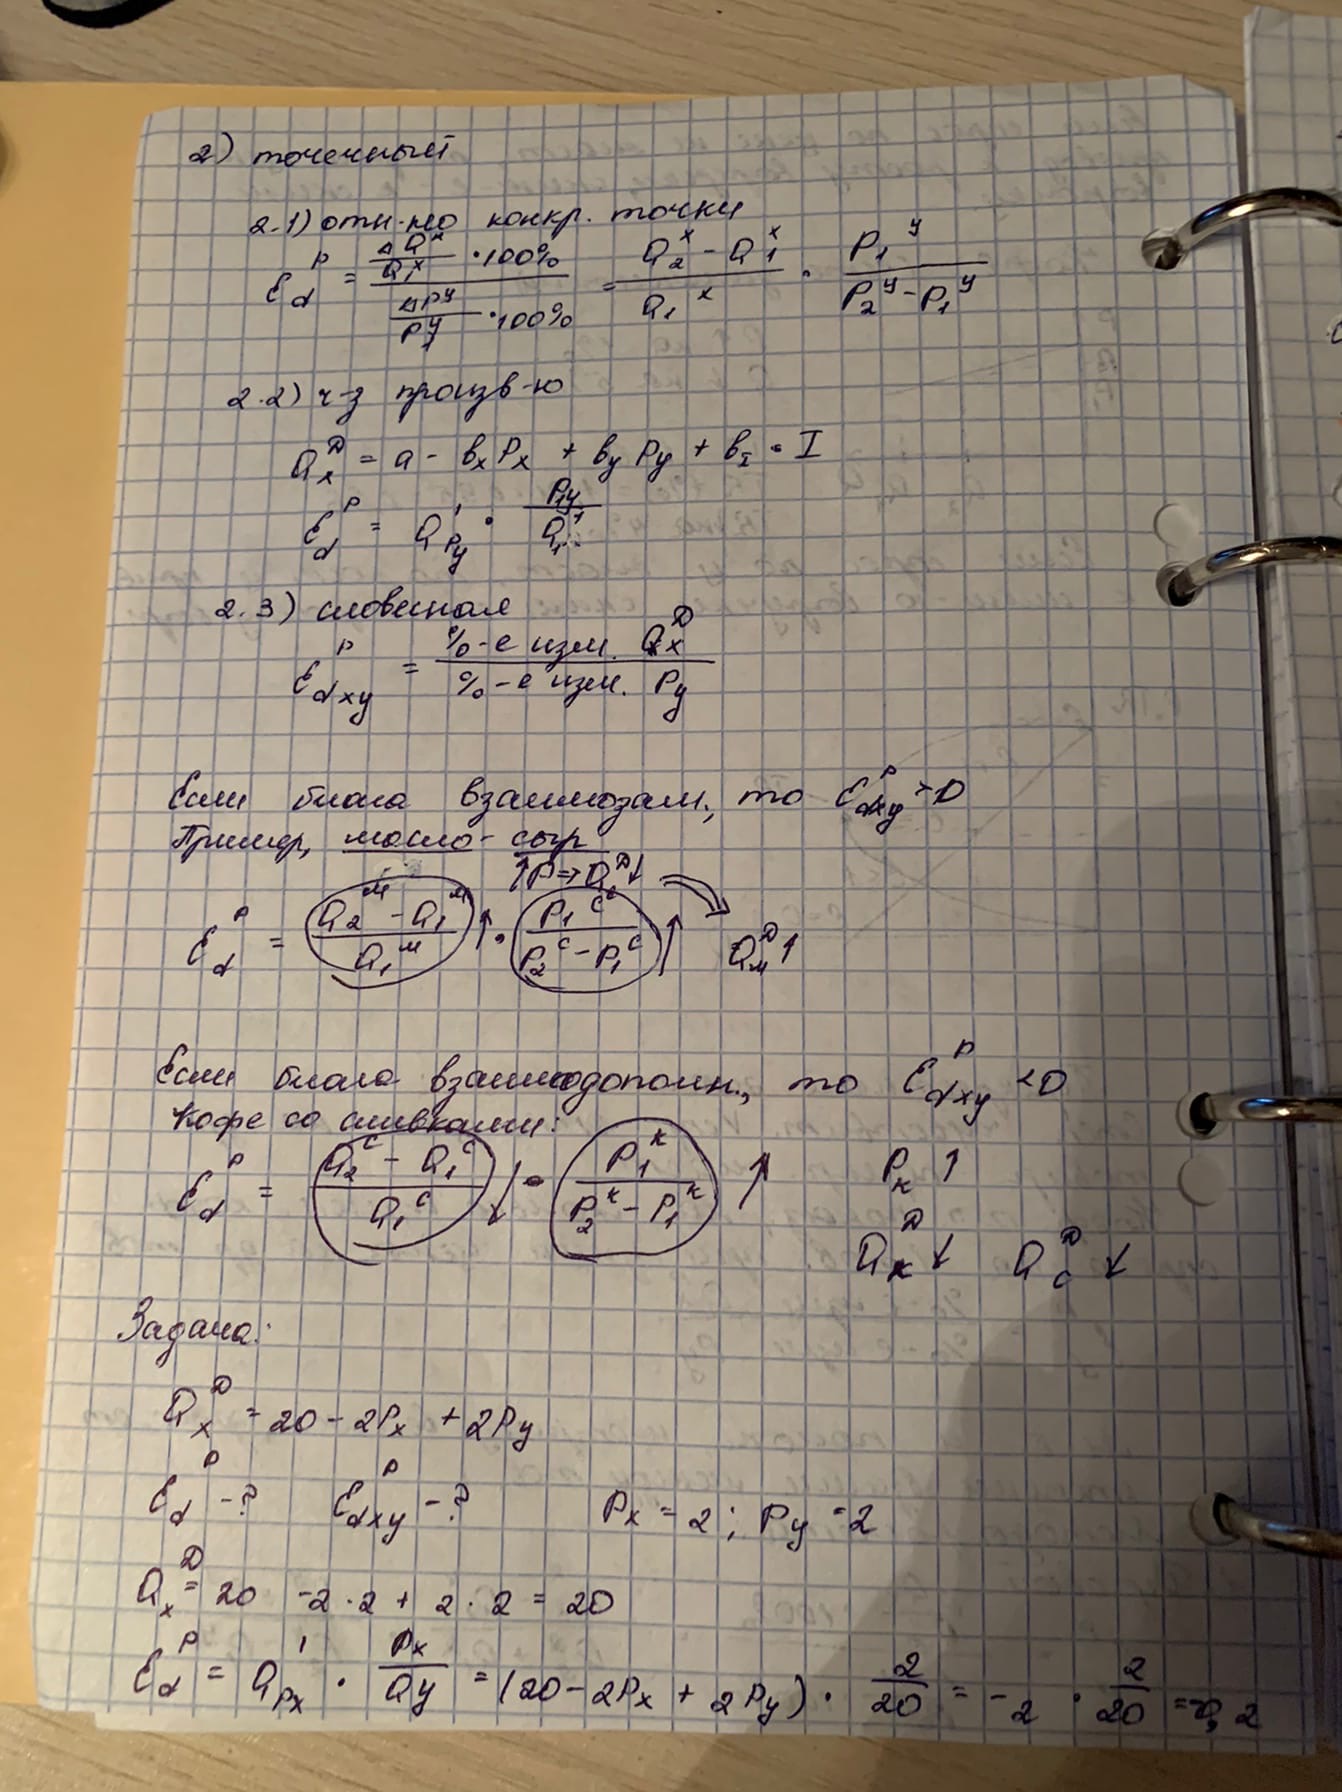 2) точечный
2.1) отн-но конкр. точки
E_d^P = (ΔQ^x / Q_1^x · 100%) / (ΔP^y / P_1^y · 100%) = (Q_2^x - Q_1^x) / Q_1^x · P_1^y / (P_2^y - P_1^y)
2.2) ч-з произв-ю
Q_x^D = a - b_x P_x + b_y P_y + b_I · I
E_d^P = Q'_{P_y} · P_{1y} / Q_1
2.3) словесная
E_{dxy}^P = %-е изм. Q_x^D / %-е изм. P_y
Если блага взаимозам., то E_{dxy}^P > 0
Пример, масло - сыр
↑P ⇒ Q_c^D ↓
E_d^P = (Q_2^м - Q_1^м) / Q_1^м ↑ · P_1^c / (P_2^c - P_1^c) ↑ Q_м^D ↑
Если блага взаимодополн., то E_{dxy}^P < 0
Кофе со сливками:
E_d^P = (Q_2^c - Q_1^c) / Q_1^c ↓ · P_1^к / (P_2^к - P_1^к) ↑ P_к ↑
Q_к^D ↓ Q_c^D ↓
Задача:
Q_x^D = 20 - 2P_x + 2P_y
E_d^P - ? E_{dxy}^P - ? P_x = 2 ; P_y = 2
Q_x^D = 20 - 2 · 2 + 2 · 2 = 20
E_d^P = Q'_{P_x} · P_x / Q_y = (20 - 2P_x + 2P_y) · 2/20 = -2 · 2/20 = -0,2